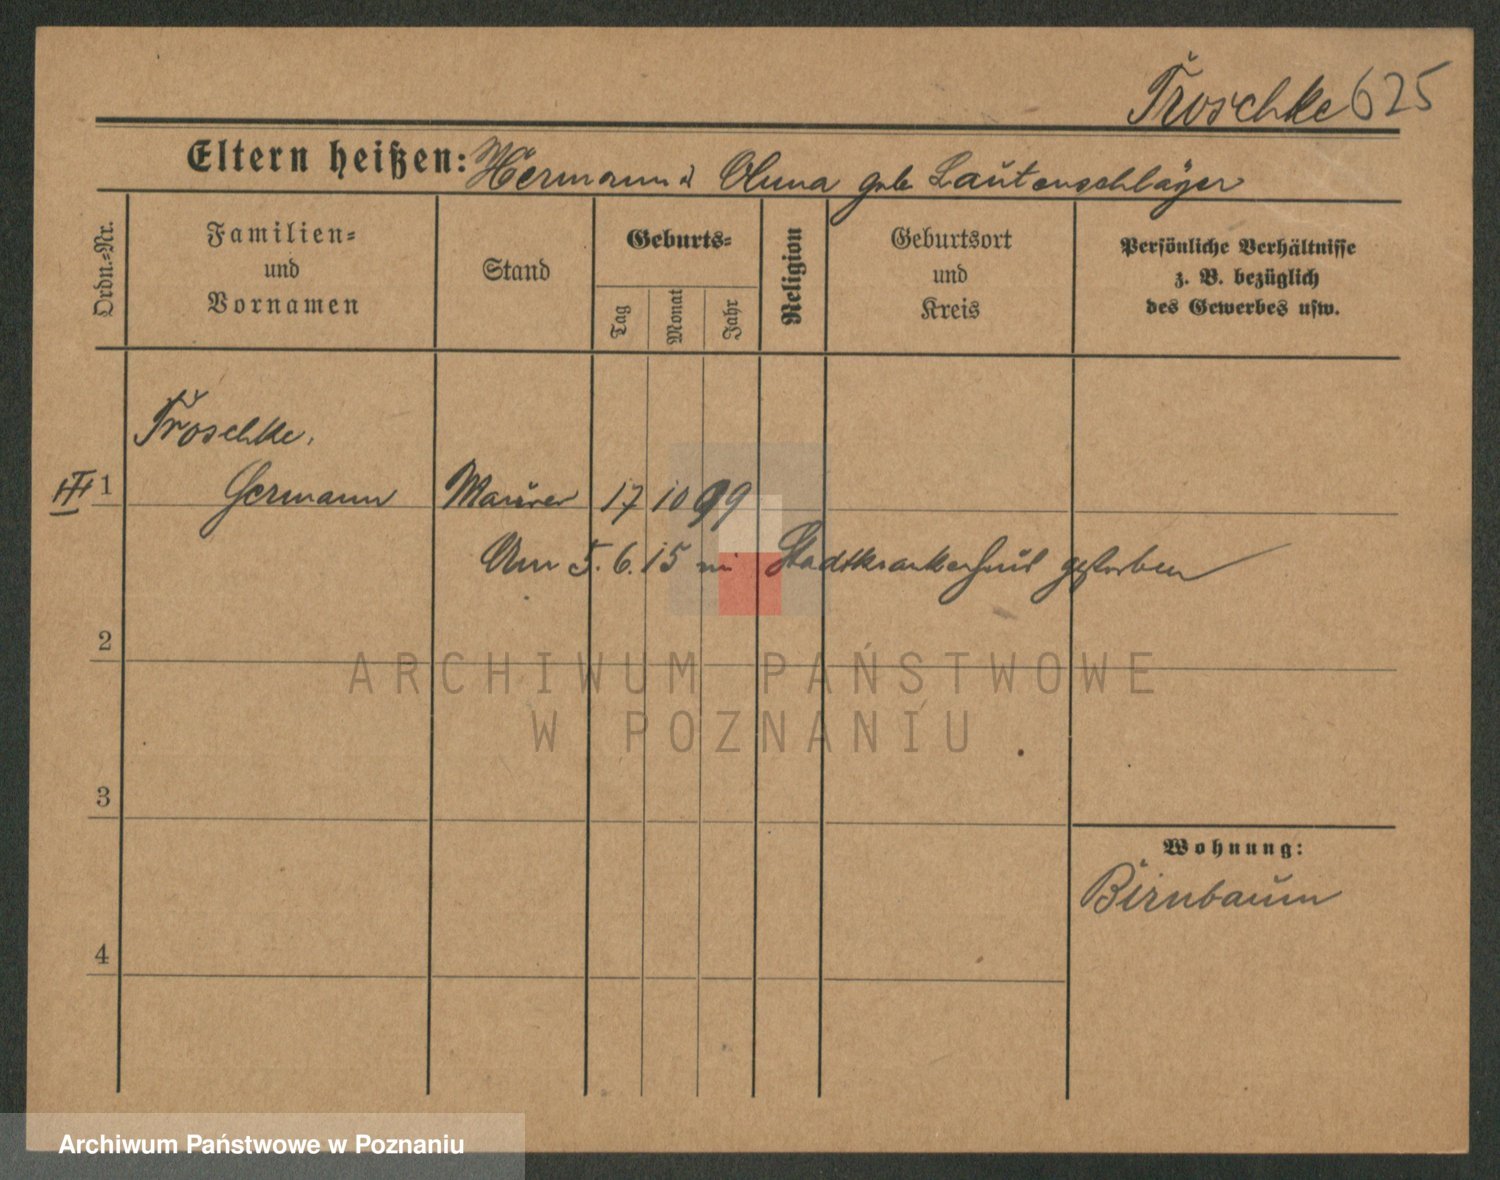 Troschke 625
Eltern heißen: Hermann u Anna geb. Lautenschläger
Ordn.=Nr.
Familien=
und
Vornamen
Stand
Geburts=
Tag
Monat
Jahr
Religion
Geburtsort
und
Kreis
Persönliche Verhältnisse
z. B. bezüglich
des Gewerbes usw.
Troschke,
III 1 Hermann Maurer 17 10 99
Am 5. 6. 15 im Stadtkrankenhaus gestorben
2
ARCHIWUM PAŃSTWOWE
W POZNANIU
3
Wohnung:
Birnbaum
4
Archiwum Państwowe w Poznaniu